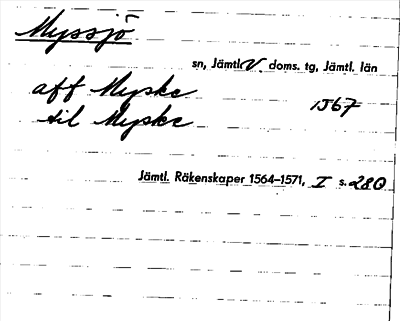 Myssjö
sn, Jämtl. V. doms. tg, Jämtl. län
aff Myske 1567
til Myske
Jämtl. Räkenskaper 1564–1571, I s. 280